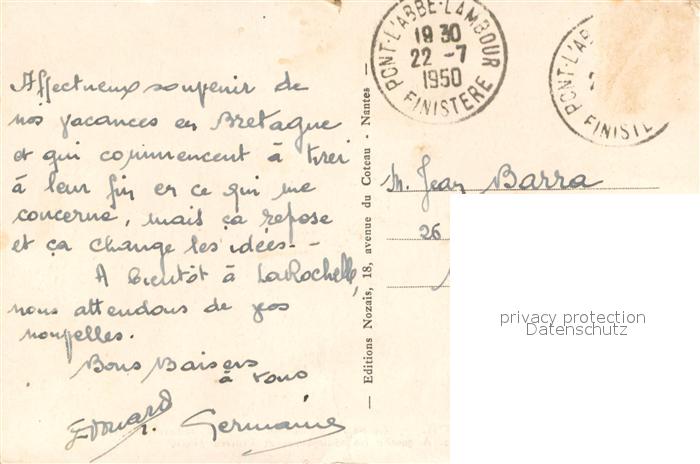 Affectueux souvenir de
nos vacances en Bretagne
et qui commencent à tirer
à leur fin en ce qui me
concerne, mais ça repose
et ça change les idées--
A bientôt à LaRochelle,
nous attendons de vos
nouvelles.
Bons Baisers
à vous
Edouard. Germaine
— Editions Nozais, 18, avenue du Coteau - Nantes —
PONT-L'ABBE-LAMBOUR
19 30
22 -7
1950
FINISTERE
PONT-L'AB
FINISTE
M. Jean Barra
26
privacy protection
Datenschutz